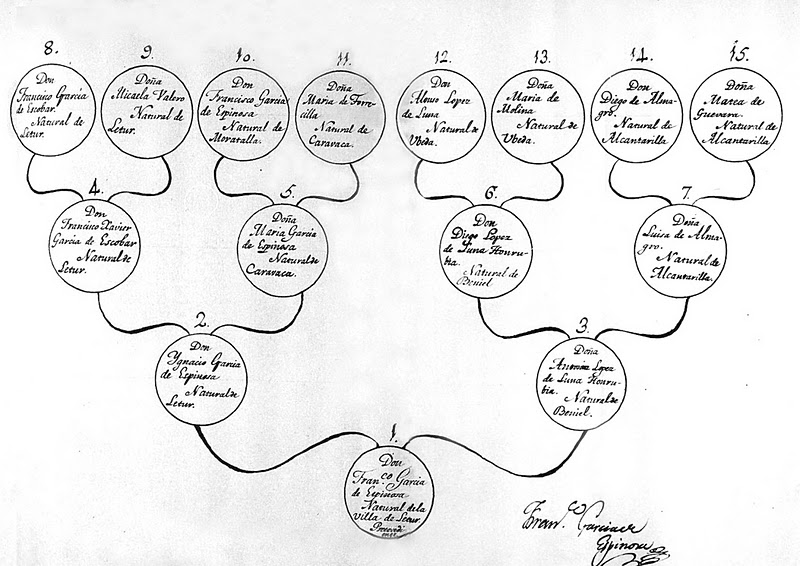 8.
9.
10.
11.
12.
13.
14.
15.
Don
Francisco Garcia
de Escobar.
Natural de
Letur.
Doña
Micaela Valero
Natural de
Letur.
Don
Francisco Garcia
de Espinosa
Natural de
Moratalla.
Doña
Maria de Torre-
cilla
Natural de
Caravaca.
Don
Alonso Lopez
de Luna
Natural de
Vbeda.
Doña
Maria de
Molina
Natural de
Vbeda.
Don
Diego de Alma-
gro.
Natural de
Alcantarilla
Doña
Marca de
Guevara.
Natural de
Alcantarilla
4.
5.
6.
7.
Don
Francisco Xavier
Garcia de Escobar
Natural de
Letur.
Doña
Maria Garcia
de Espinosa
Natural de
Caravaca.
Don
Diego Lopez
de Luna Honru-
bia.
Natural de
Beniel
Doña
Luisa de Alma-
gro.
Natural de
Alcantarilla.
2.
3.
Don
Ygnacio Garcia
de Espinosa
Natural de
Letur.
Doña
Lopez
de Luna Honru-
bia.
Natural de
Beniel.
1.
Don
Fran.co Garcia
de Espinosa
Natural de la
villa de Letur.
Fran.co Garcia de
Espinosa